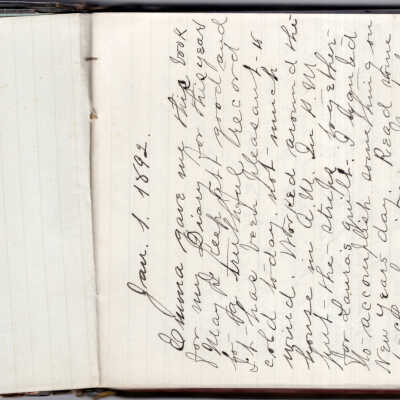 Jan. 1. 1892.
Emma gave my this book
for my Diary for this year
May I keep it good and
for by truthful record
It has been pleasant is
cold to-day not much
wind. Worked around the
house in A M. In P M
put the strips together
for Laura's quilt. I wanted
to accomplish something on
New years day. Read some